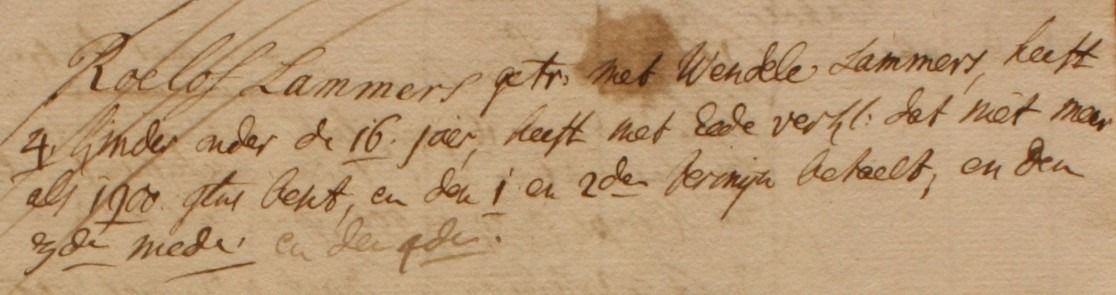 Roelof Lammers getr: met Wendele Lammers, heeft
4 kinder onder de 16. jaer, heeft met Eede verkl: dat niet meer
als 1900. glns besit, en den 1 en 2den termijn betaelt, en den
3den mede. en den 4den.